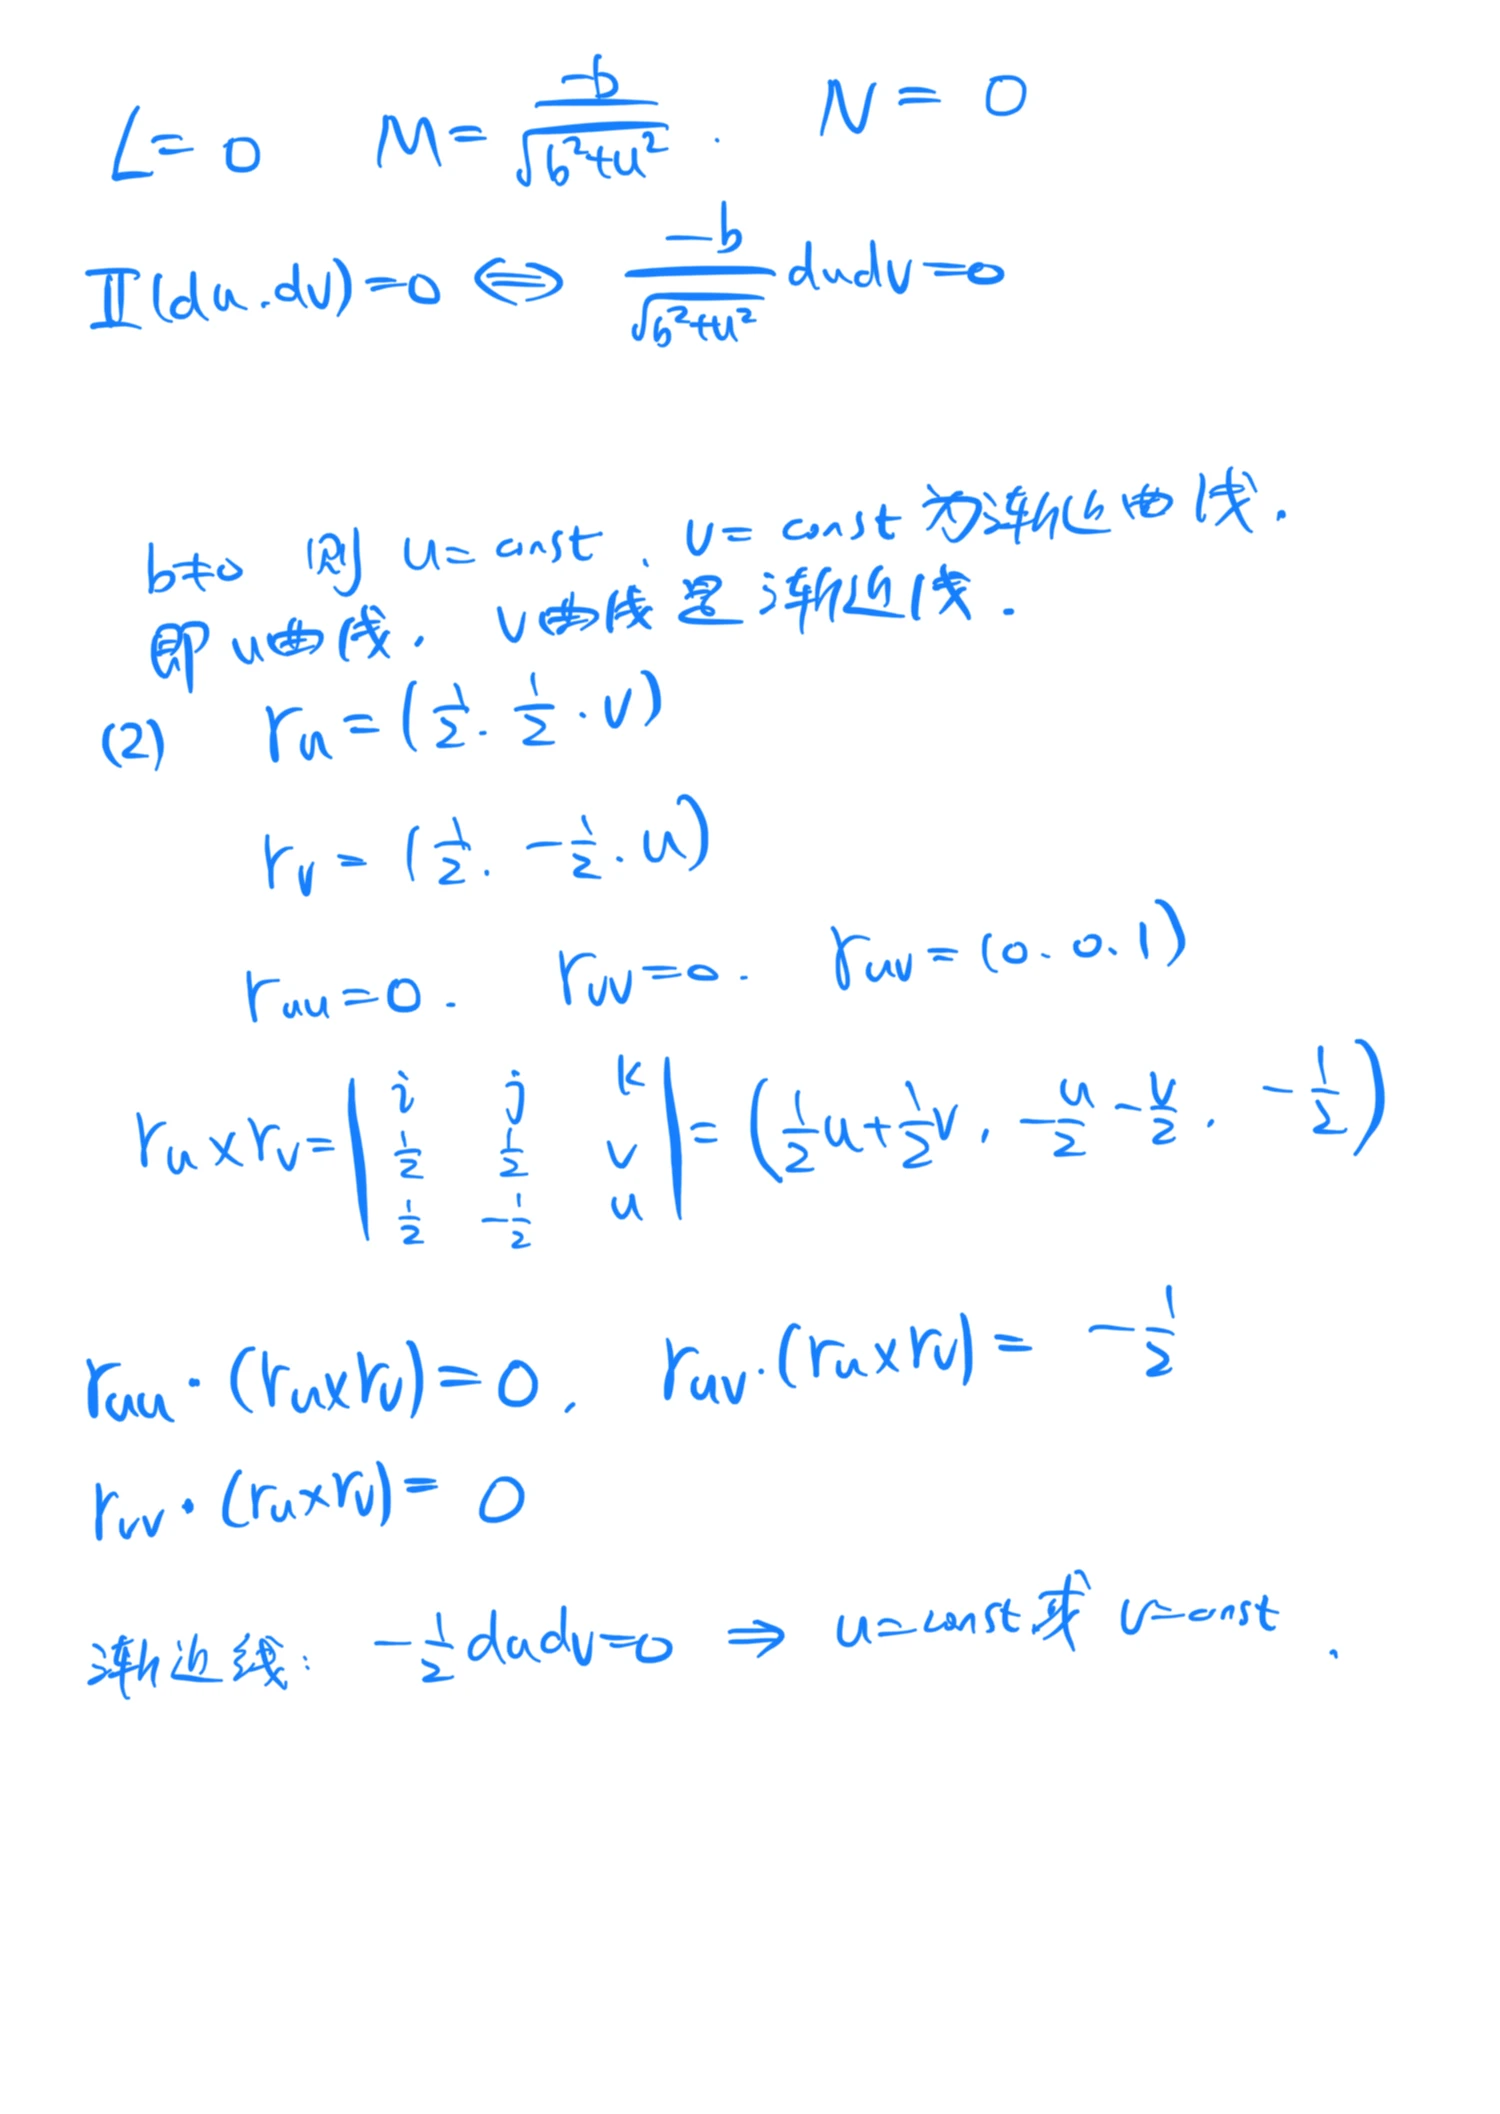 L=0 M=\frac{-b}{\sqrt{b^2+u^2}}. N=0
II(du.dv)=0 ⇔ \frac{-b}{\sqrt{b^2+u^2}}dudv=0
b≠0 则 u=const. v=const 为渐近曲线.
即u曲线, v曲线是渐近线.
(2) r_u=(\frac{1}{2}.\frac{1}{2}.v)
r_v=(\frac{1}{2}.-\frac{1}{2}.u)
r_{uu}=0. r_{vv}=0. r_{uv}=(0.0.1)
r_u×r_v=\begin{vmatrix} i & j & k \\ \frac{1}{2} & \frac{1}{2} & v \\ \frac{1}{2} & -\frac{1}{2} & u \end{vmatrix}=(\frac{1}{2}u+\frac{1}{2}v, -\frac{u}{2}-\frac{v}{2}. -\frac{1}{2})
r_{uu}·(r_u×r_v)=0, r_{uv}·(r_u×r_v)=-\frac{1}{2}
r_{vv}·(r_u×r_v)=0
渐近线: -\frac{1}{2}dudv=0 ⇒ u=const或 v=const.